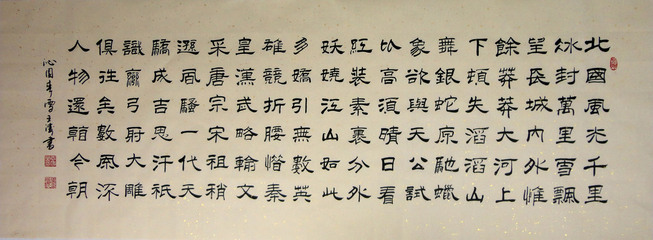 北國風光千里
冰封萬里雪飄
望長城內外惟
餘莽莽大河上
下頓失滔滔山
舞銀蛇原馳蠟
象欲與天公試
比高須晴日看
紅裝素裹分外
妖嬈江山如此
多嬌引無數英
雄競折腰惜秦
皇漢武略輸文
采唐宗宋祖稍
遜風騷一代天
驕成吉思汗祇
識彎弓射大雕
俱往矣數風流
人物還看今朝
沁園春雪 書